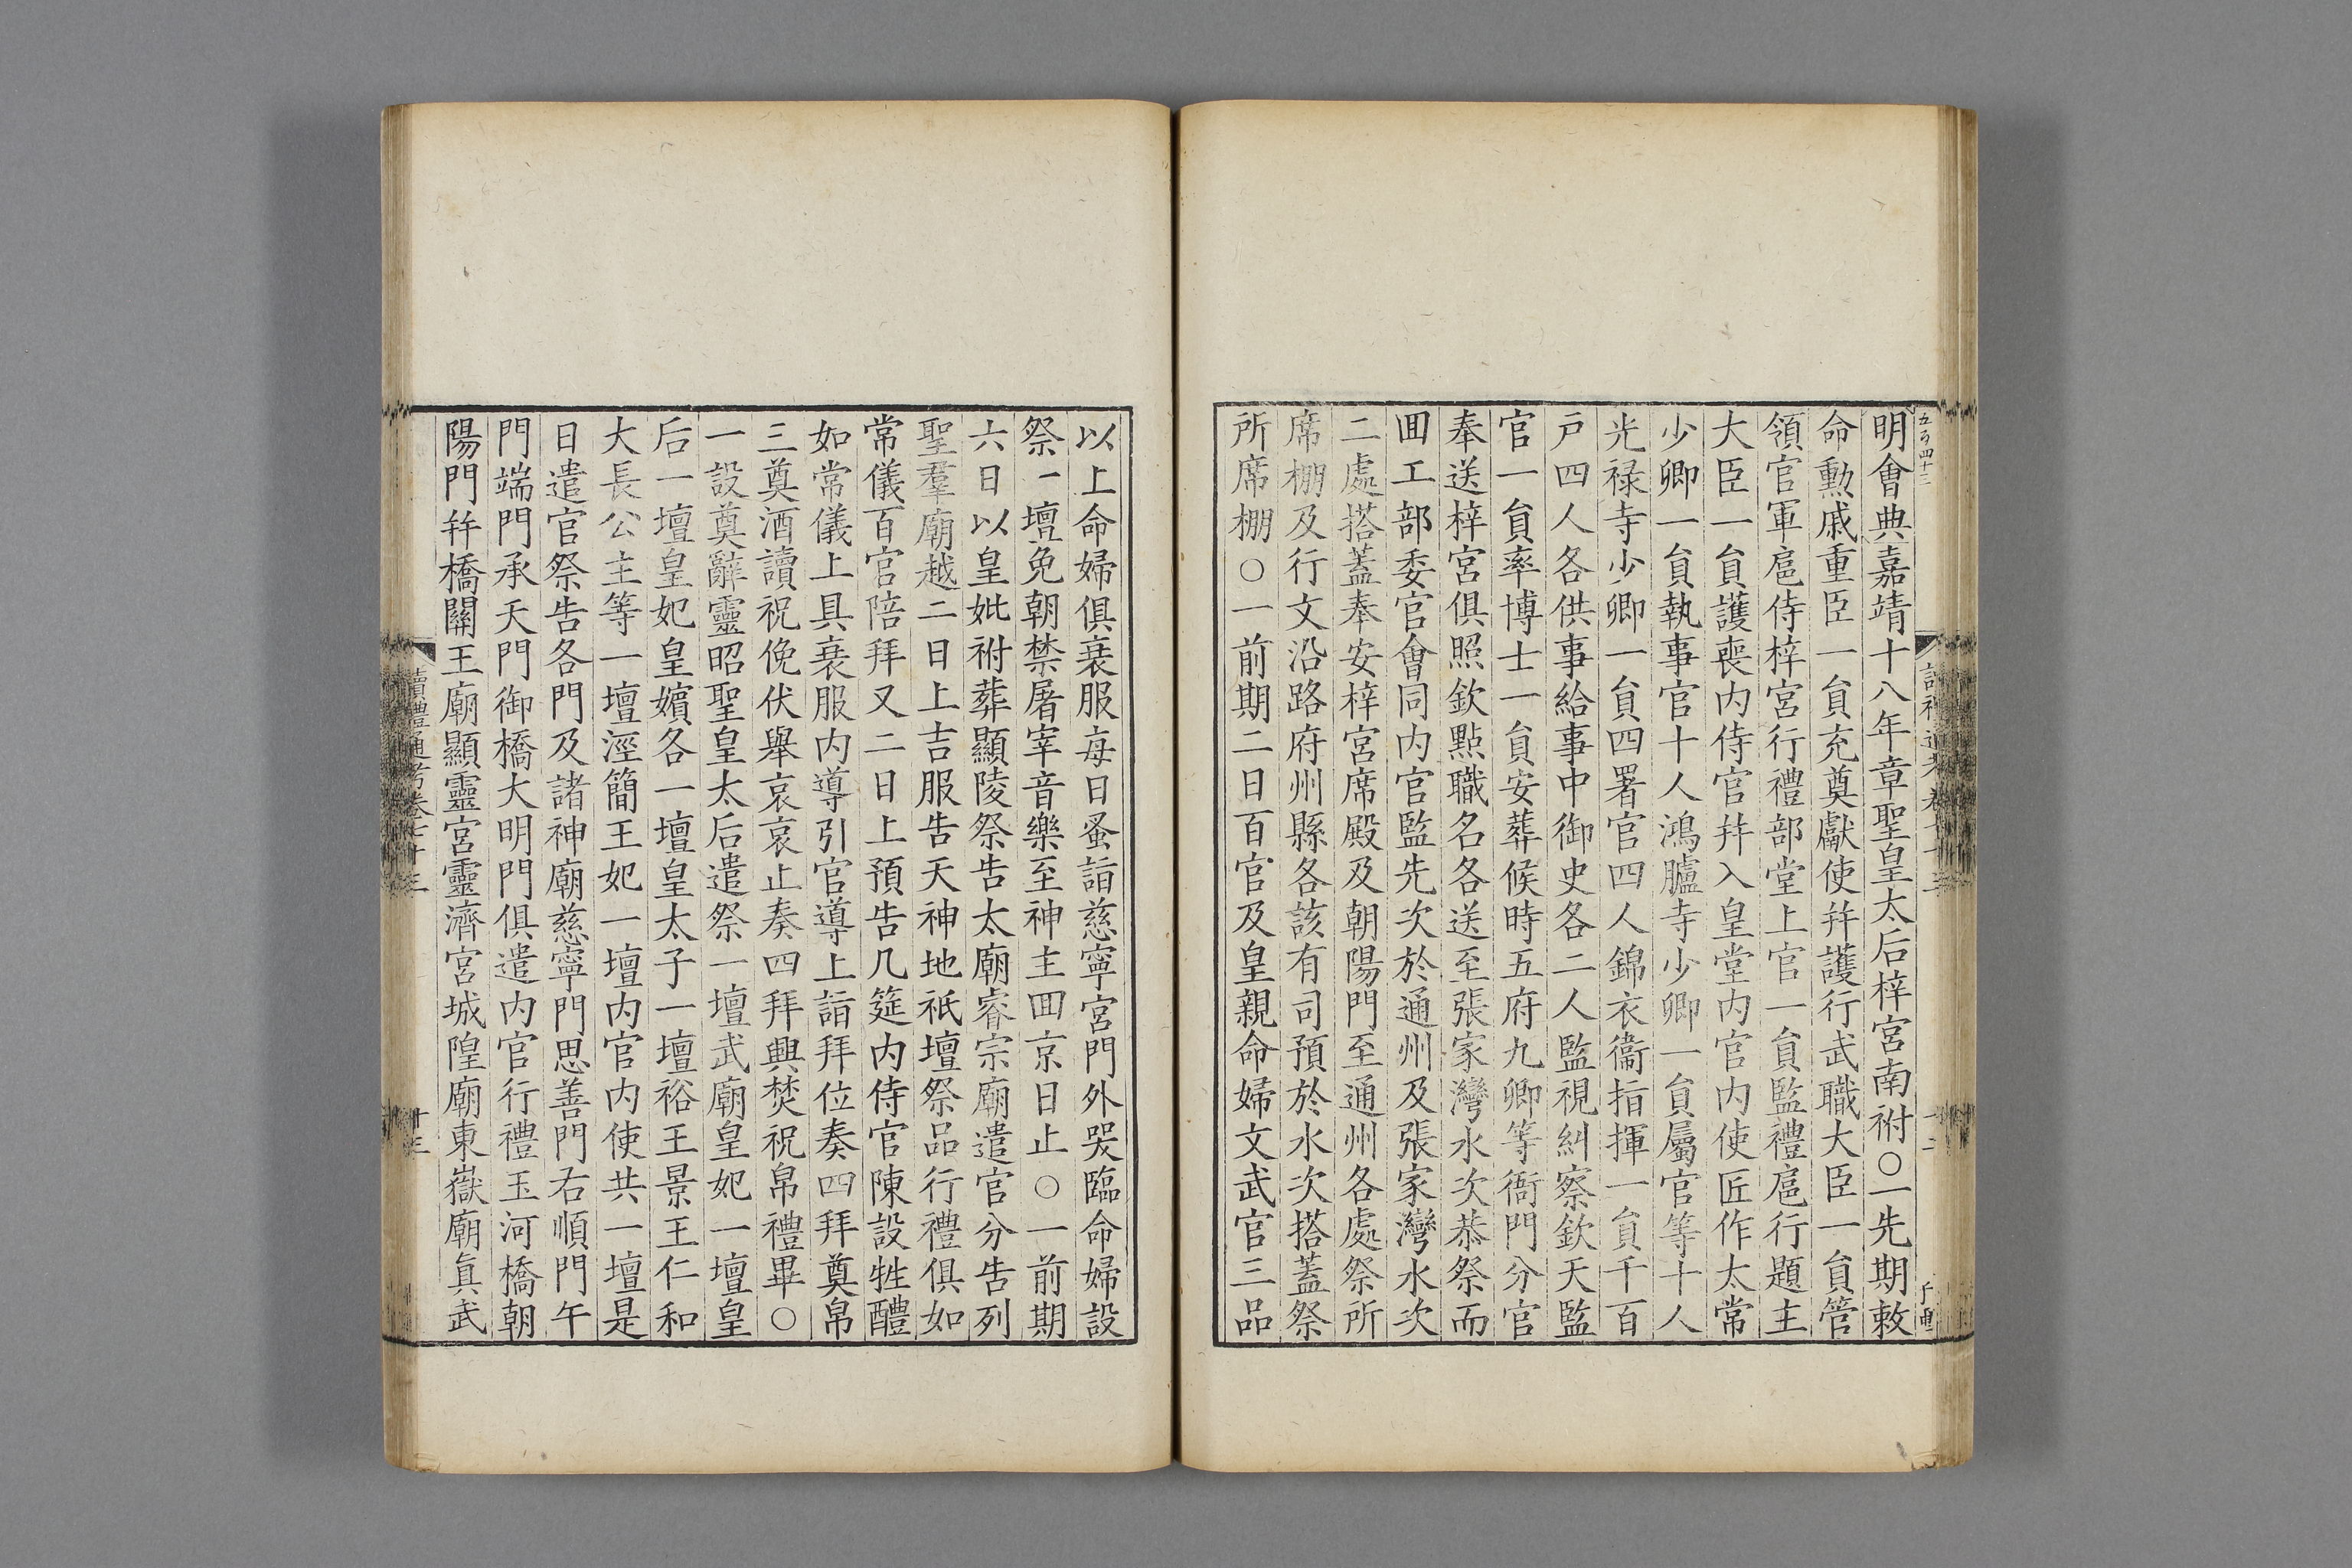 五百四十三
明會典嘉靖十八年章聖皇太后梓宮南祔○一先期敕
命勲戚重臣一員充奠獻使幷護行武職大臣一員管
領官軍扈侍梓宮行禮部堂上官一員監禮扈行題主
大臣一員護喪内侍官幷入皇堂内官内使匠作太常
少卿一員執事官十人鴻臚寺少卿一員屬官等十人
光禄寺少卿一員四署官四人錦衣衞指揮一員千百
戸四人各供事給事中御史各二人監視糾察欽天監
官一員率博士一員安葬候時五府九卿等衙門分官
奉送梓宮俱照欽點職名各送至張家灣水次恭祭而
囬工部委官會同内官監先次於通州及張家灣水次
二處搭蓋奉安梓宮席殿及朝陽門至通州各處祭所
席棚及行文沿路府州縣各該有司預於水次搭蓋祭
所席棚○一前期二日百官及皇親命婦文武官三品
以上命婦俱衰服每日蚤詣慈寧宮門外哭臨命婦設
祭一壇免朝禁屠宰音樂至神主囬京日止○一前期
六日以皇妣祔葬顯陵祭告太廟睿宗廟遣官分告列
聖羣廟越二日上吉服告天神地祇壇祭品行禮俱如
常儀百官陪拜又二日上預告几筵内侍官陳設牲醴
如常儀上具衰服内導引官導上詣拜位奏四拜奠帛
三奠酒讀祝俛伏舉哀哀止奏四拜興焚祝帛禮畢○
一設奠辭靈昭聖皇太后遣祭一壇武廟皇妃一壇皇
后一壇皇妃皇嬪各一壇皇太子一壇裕王景王仁和
大長公主等一壇涇簡王妃一壇内官内使共一壇是
日遣官祭告各門及諸神廟慈寧門思善門右順門午
門端門承天門御橋大明門俱遣内官行禮玉河橋朝
陽門幷橋關王廟顯靈宮靈濟宮城隍廟東嶽廟眞武
讀禮通考卷七十三
十三